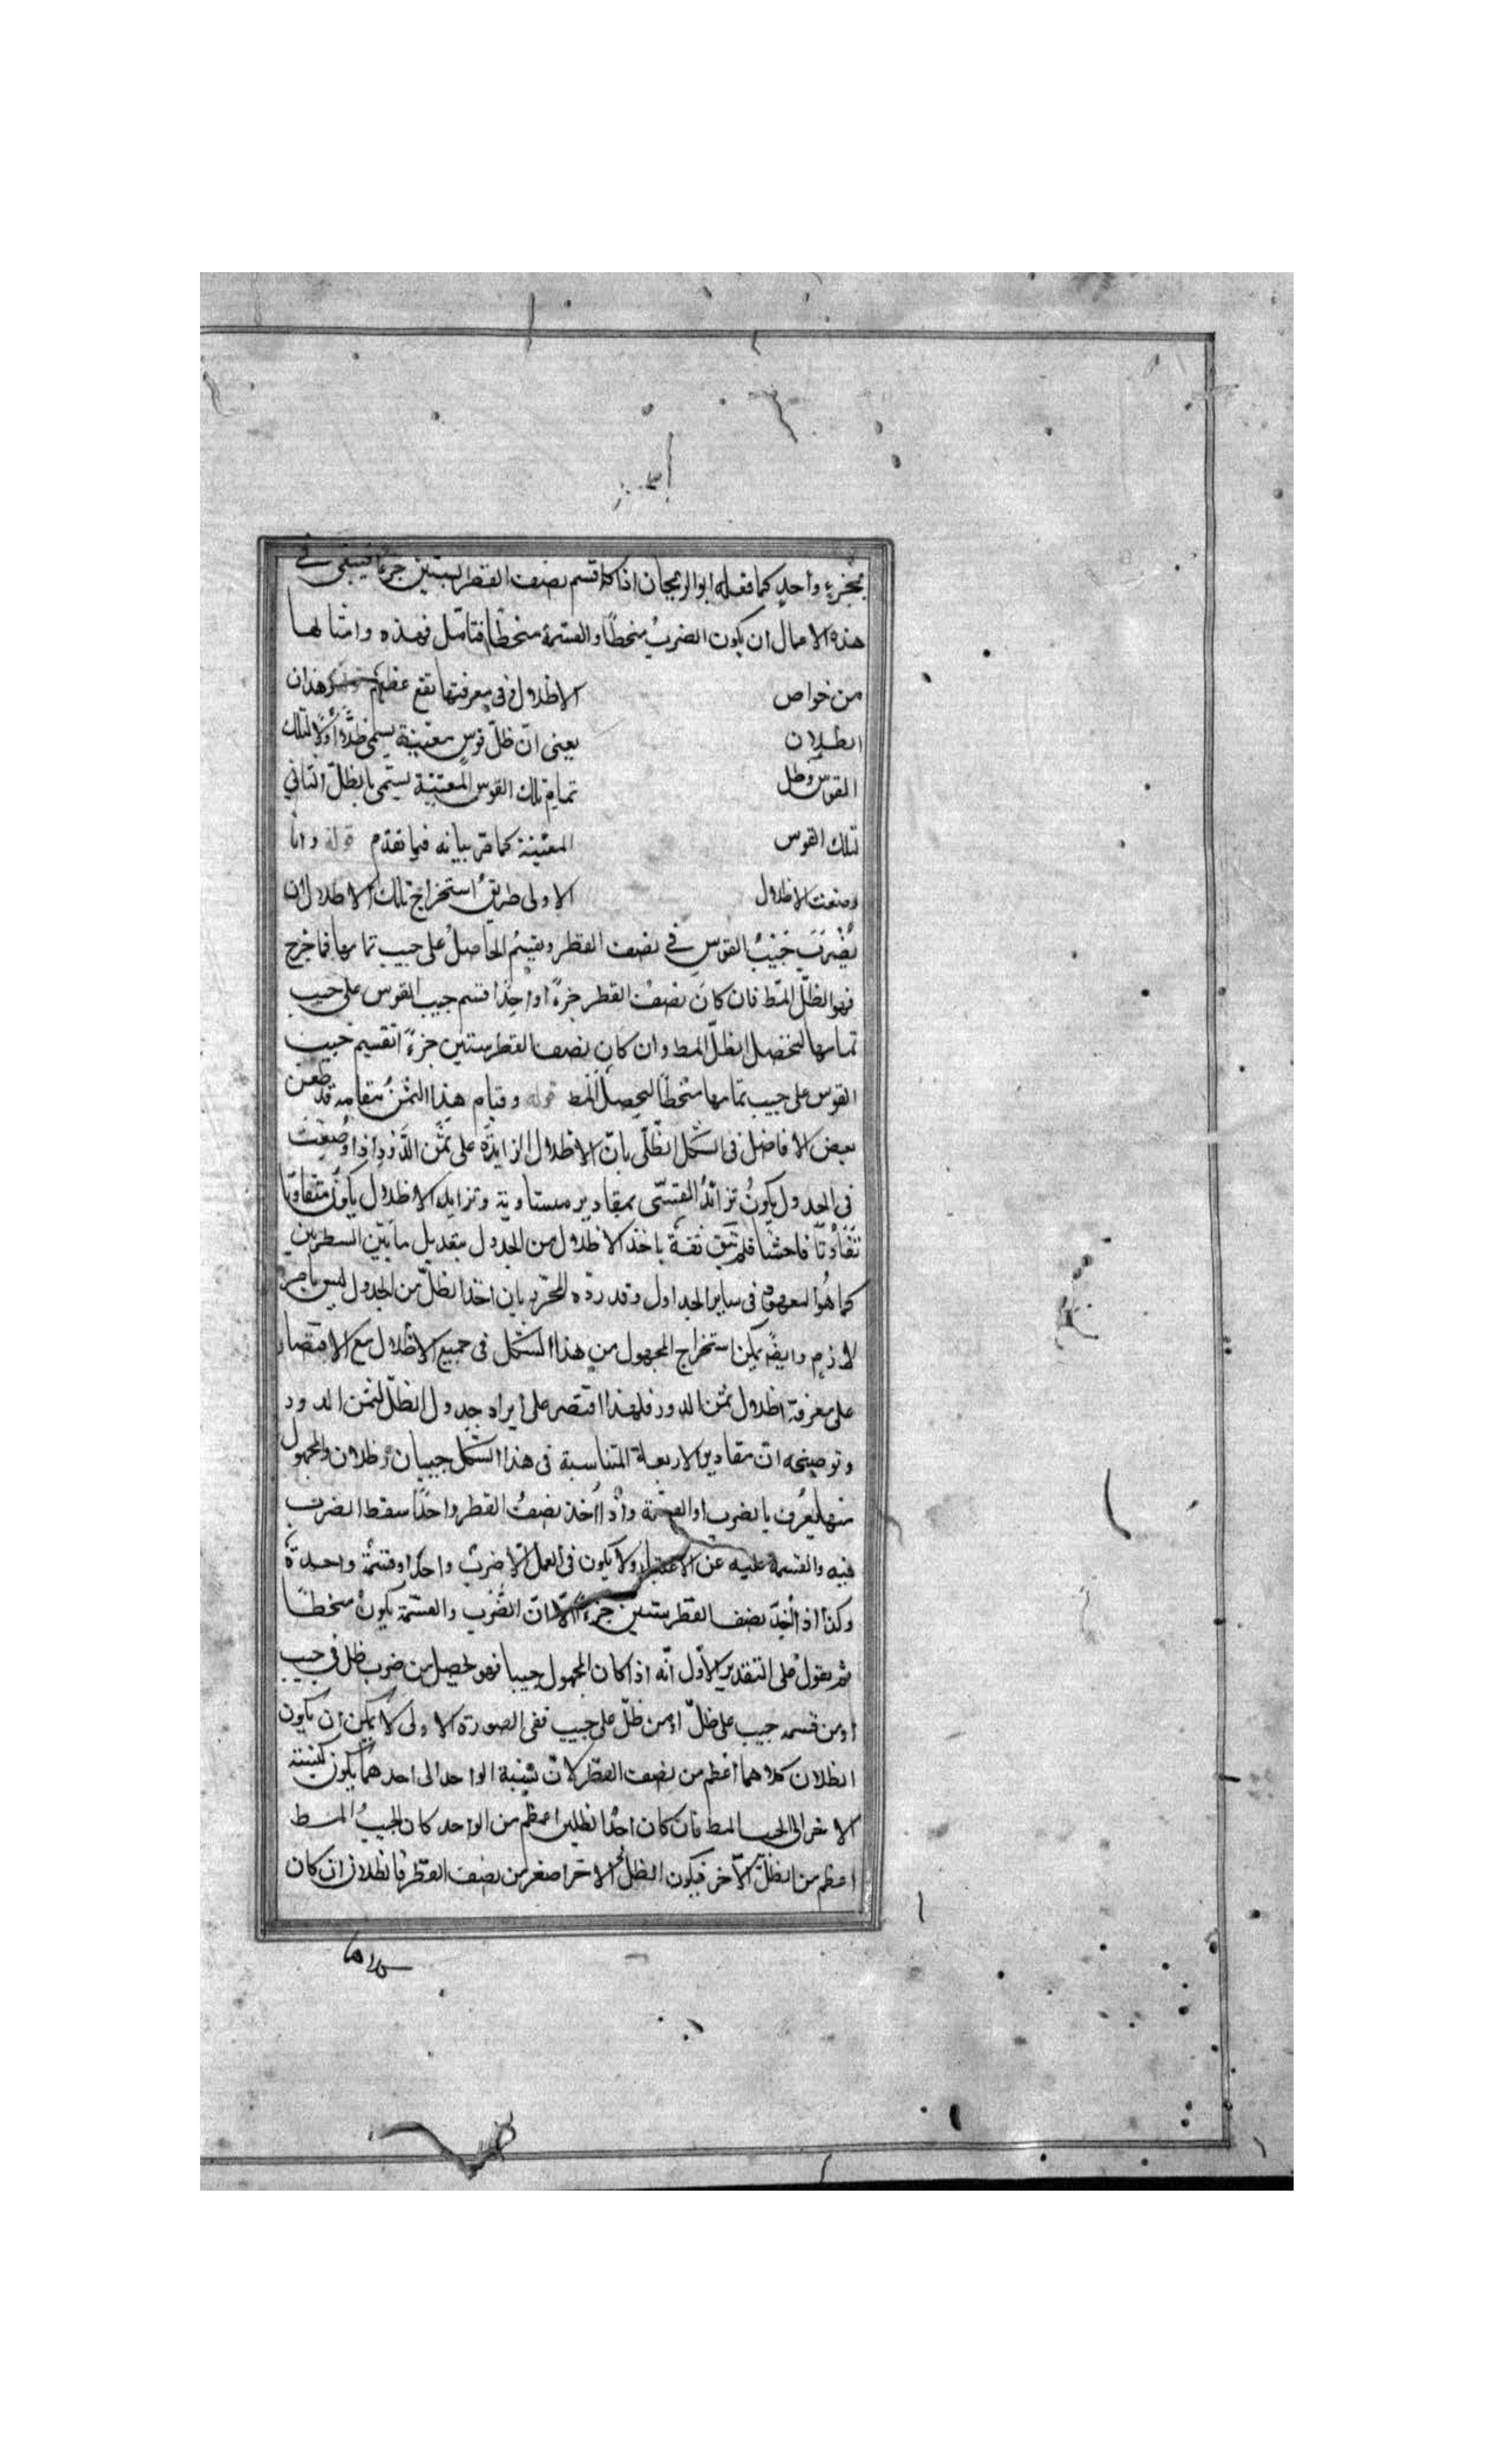 بجزء واحد كما فعله ابو الريحان اذا كا قسم نصف القطر بستين جزءا فينبغي في
هذه الاعمال ان يكون الضرب منحطا والقسمة منحطا فتامل فهذه وامثالها
من خواص الاظلال ففي معرفتها نفع عظيم هذان
الظلان يعني انّ ظلّ قوس معيّنة يسمى ظلّا أولا لتلك
القوس وظل تمام تلك القوس المعيّنة يسمّى بالظلّ الثاني
لتلك القوس المعيّنة كما مرّ بيانه فيما تقدم قوله واما
وضعت الاظلال الاولى طريق استخراج تلك الاظلال ان
يُضْرَبَ جَيْبُ القوس في نصف القطر ويقسم الحاصل على جيب تمامها فما خرج
فهو الظلّ المط فان كان نصف القطر جزءً اواحدًا قسم جيب القوس على جيب
تمامها ليحصل الظلّ المط وان كان نصف القطر ستين جزءً اتقسيم جيب
القوس على جيب تمامها منحطا ليحصل المط قوله وقيام هذا الثمن مقامه قد طعن
بعض الافاضل في الشكل الظلّي بانّ الاظلال الزايدة على ثمن الدّور اذا وُضِعَت
في الجدول يكونُ تزائدُ القسيّ بمقادير مستاوية وتزايد الاظلال يكون متفاوتا
تفاوتًا فاحشا فلم تبق ثقة باخذ الاظلال من الجدول بتعديل ما بيّن السطرين
كما هُوَ المعهود في ساير الجداول وقد ردّه المحرّر بان اخذ الظلّ من الجدول ليس بامر
لازم وايضً يمكن استخراج المجهول من هذا الشكل في جميع الاظلال مع الاقتصار
على معرفة اظلال ثمن الدور فلهذا اقتصر على ايراد جدول الظلّ لثمن الدور
وتوضيحه انّ مقادير الاربعة المتناسبة في هذا الشكل جيبان وظلان والمجهول
منها يعرف بالضرب او القسمة واذا اُخذ نصفُ القطر واحدًا سقط الضرب
فيه والقسمة عليه عن الاعتبار ولا يكون في العمل الّا ضربٌ واحد او قسمة واحدة
وكذا اذ اُخِذ نصف القطر ستين جزءً الّا انّ الضرب والقسمة يكون منحطا
ثم يقول على التقدير الاول انّه اذا كان المجهول جيبا فهو يحصل من ضرب ظل في جيب
او من قسمه جيب على ظلّ او من ظلّ على جيب ففي الصورة الاولى لا يمكن ان يكون
الظلان كلاهما اعظم من نصف القطر لانّ نسبة الواحد الى احدهما يكون كنسبة
الاخر الى الجيب المط فان كان احدُ الظلين اعظم من الواحد كان الجيبُ المط
اعظم من الظلّ الآخر فيكون الظلّ الاخر اصغر من نصف القطر فالظلان ان كان
كلاهما